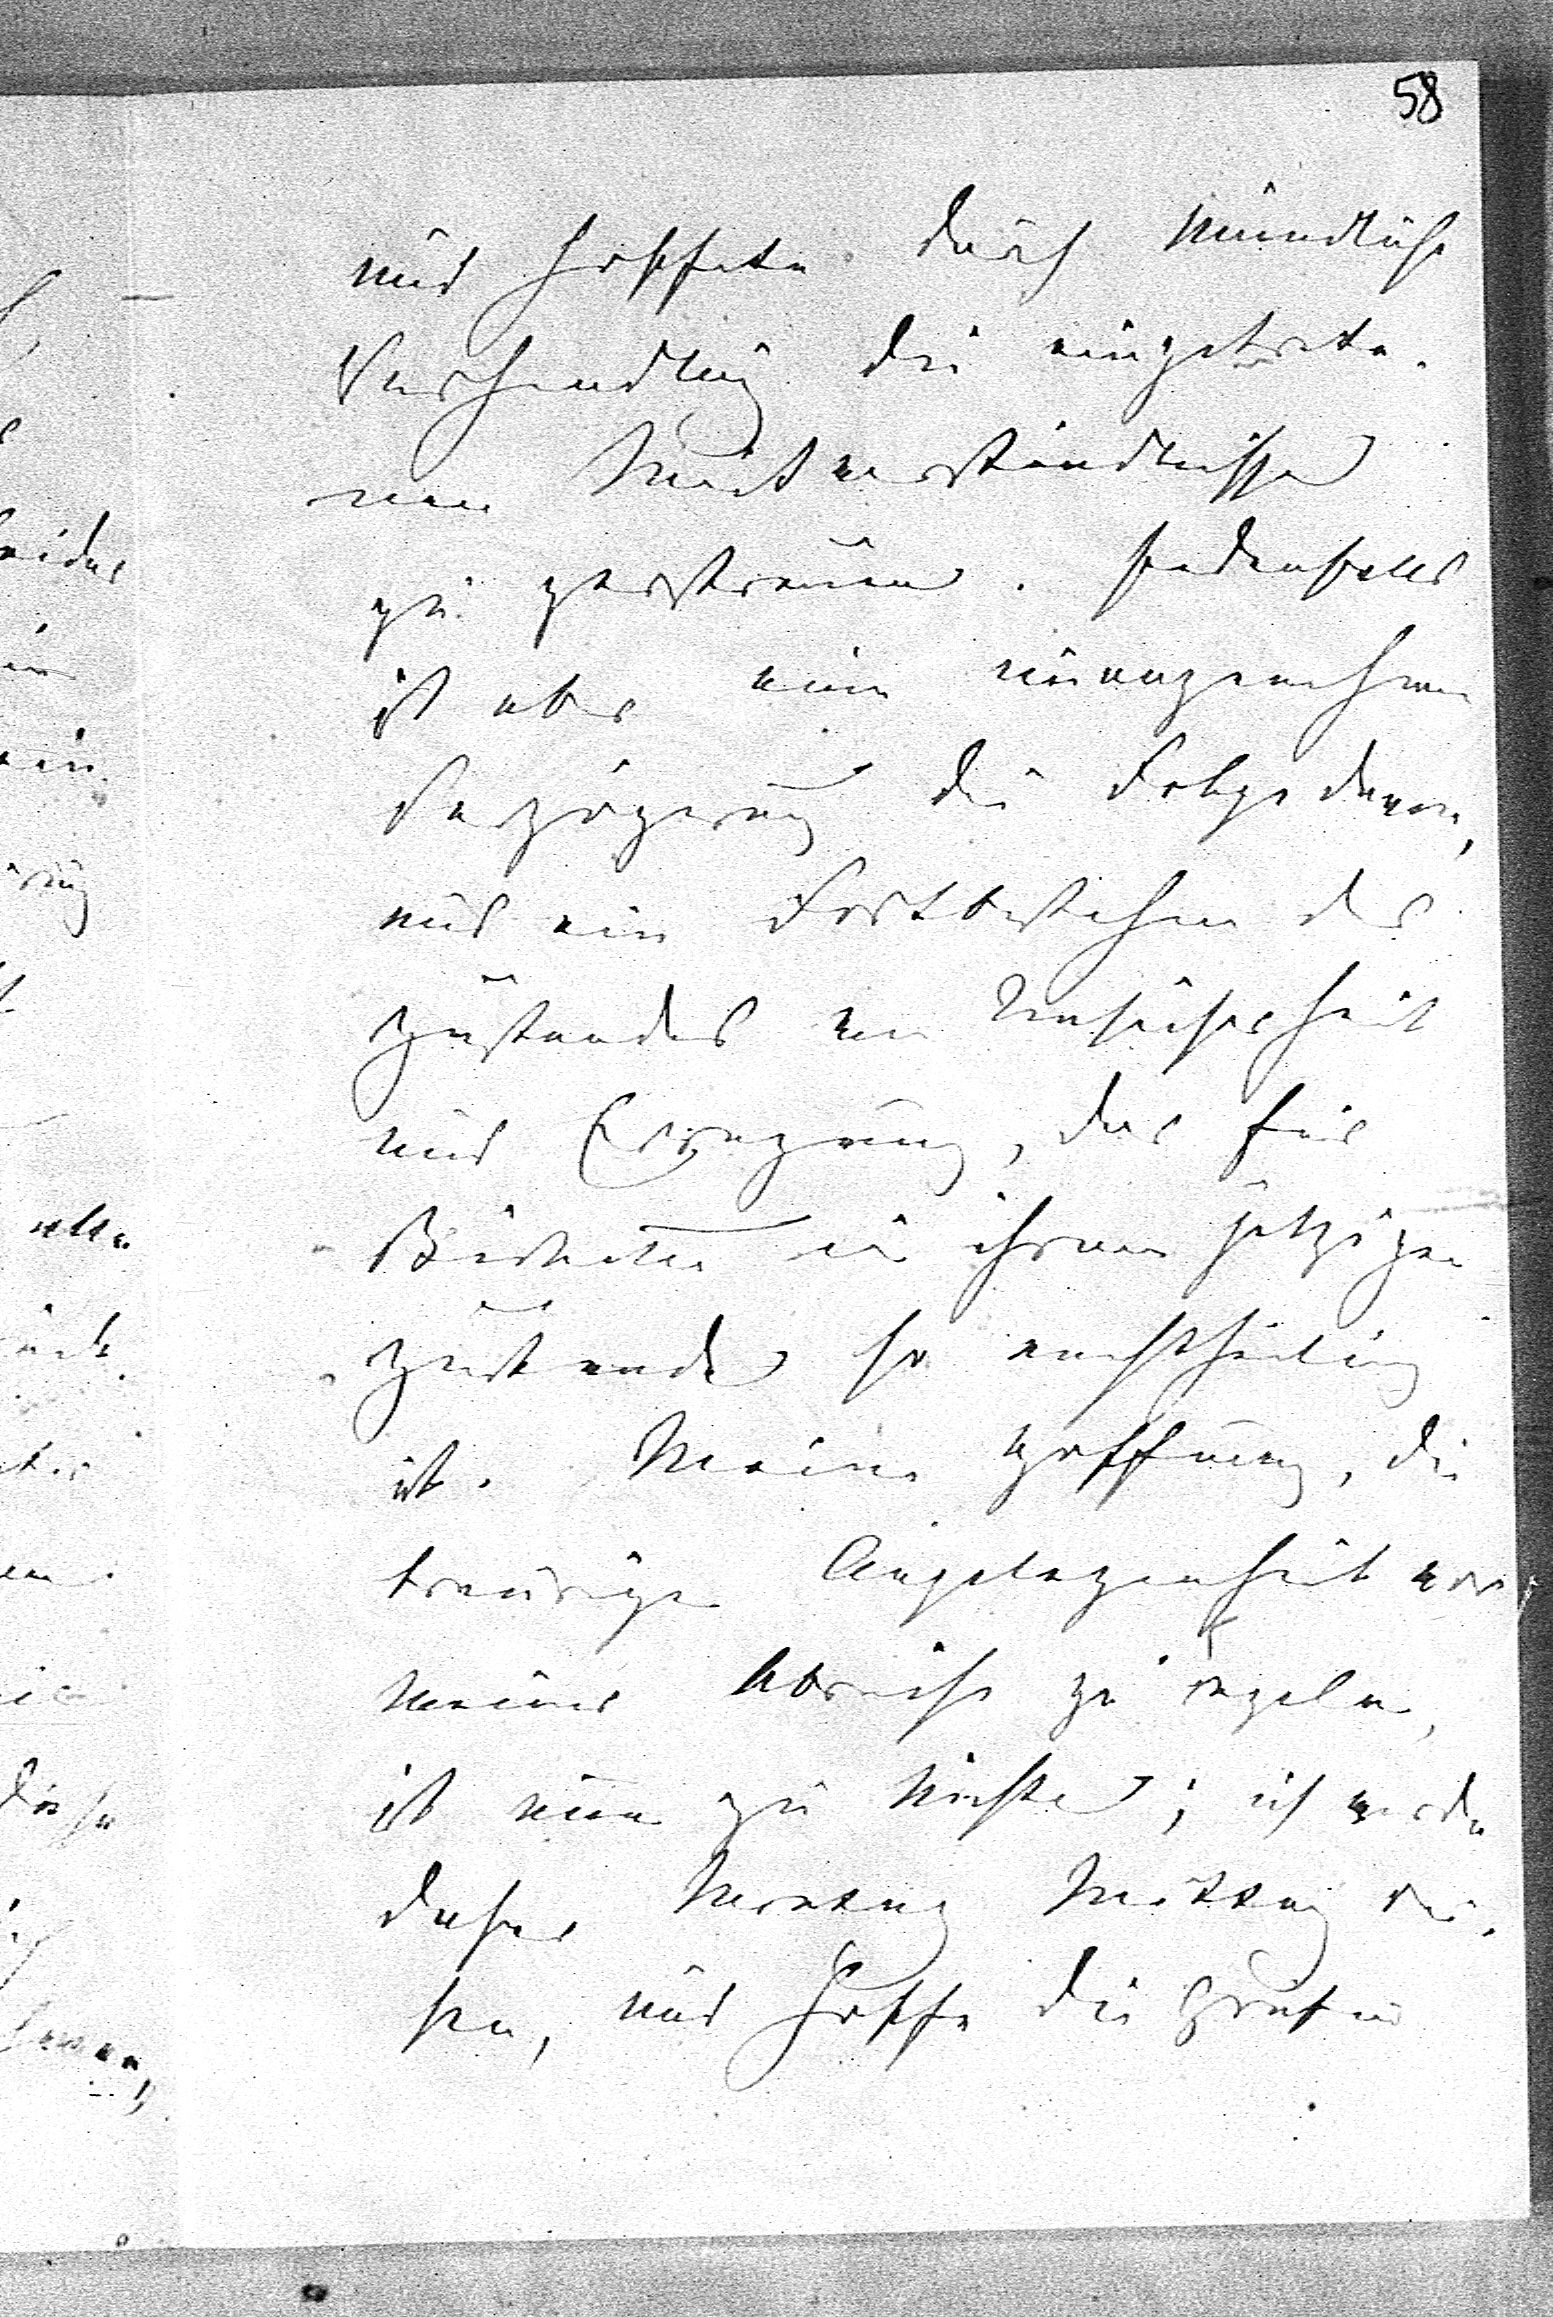 58
und hoffete durch mündliche
Verhandlung die eingetrete-
nen Mißverständnisse
zu zerstreuen. Jedenfalls
ist aber eine unangenehme
Verzögerung die Folge davon,
und ein Fortbestehen des
Zustandes von Unsicherheit
und Erregung, der für
in ihrem jetzigen
Zustande so nachtheilig
ist. Meine Hoffnung, die
traurige Angelegenheit vor
meiner Abreise zu regeln,
ist nun zu nichte; ich werde
daher Montag Mittag rei-
sen, und hoffe die Gräfin